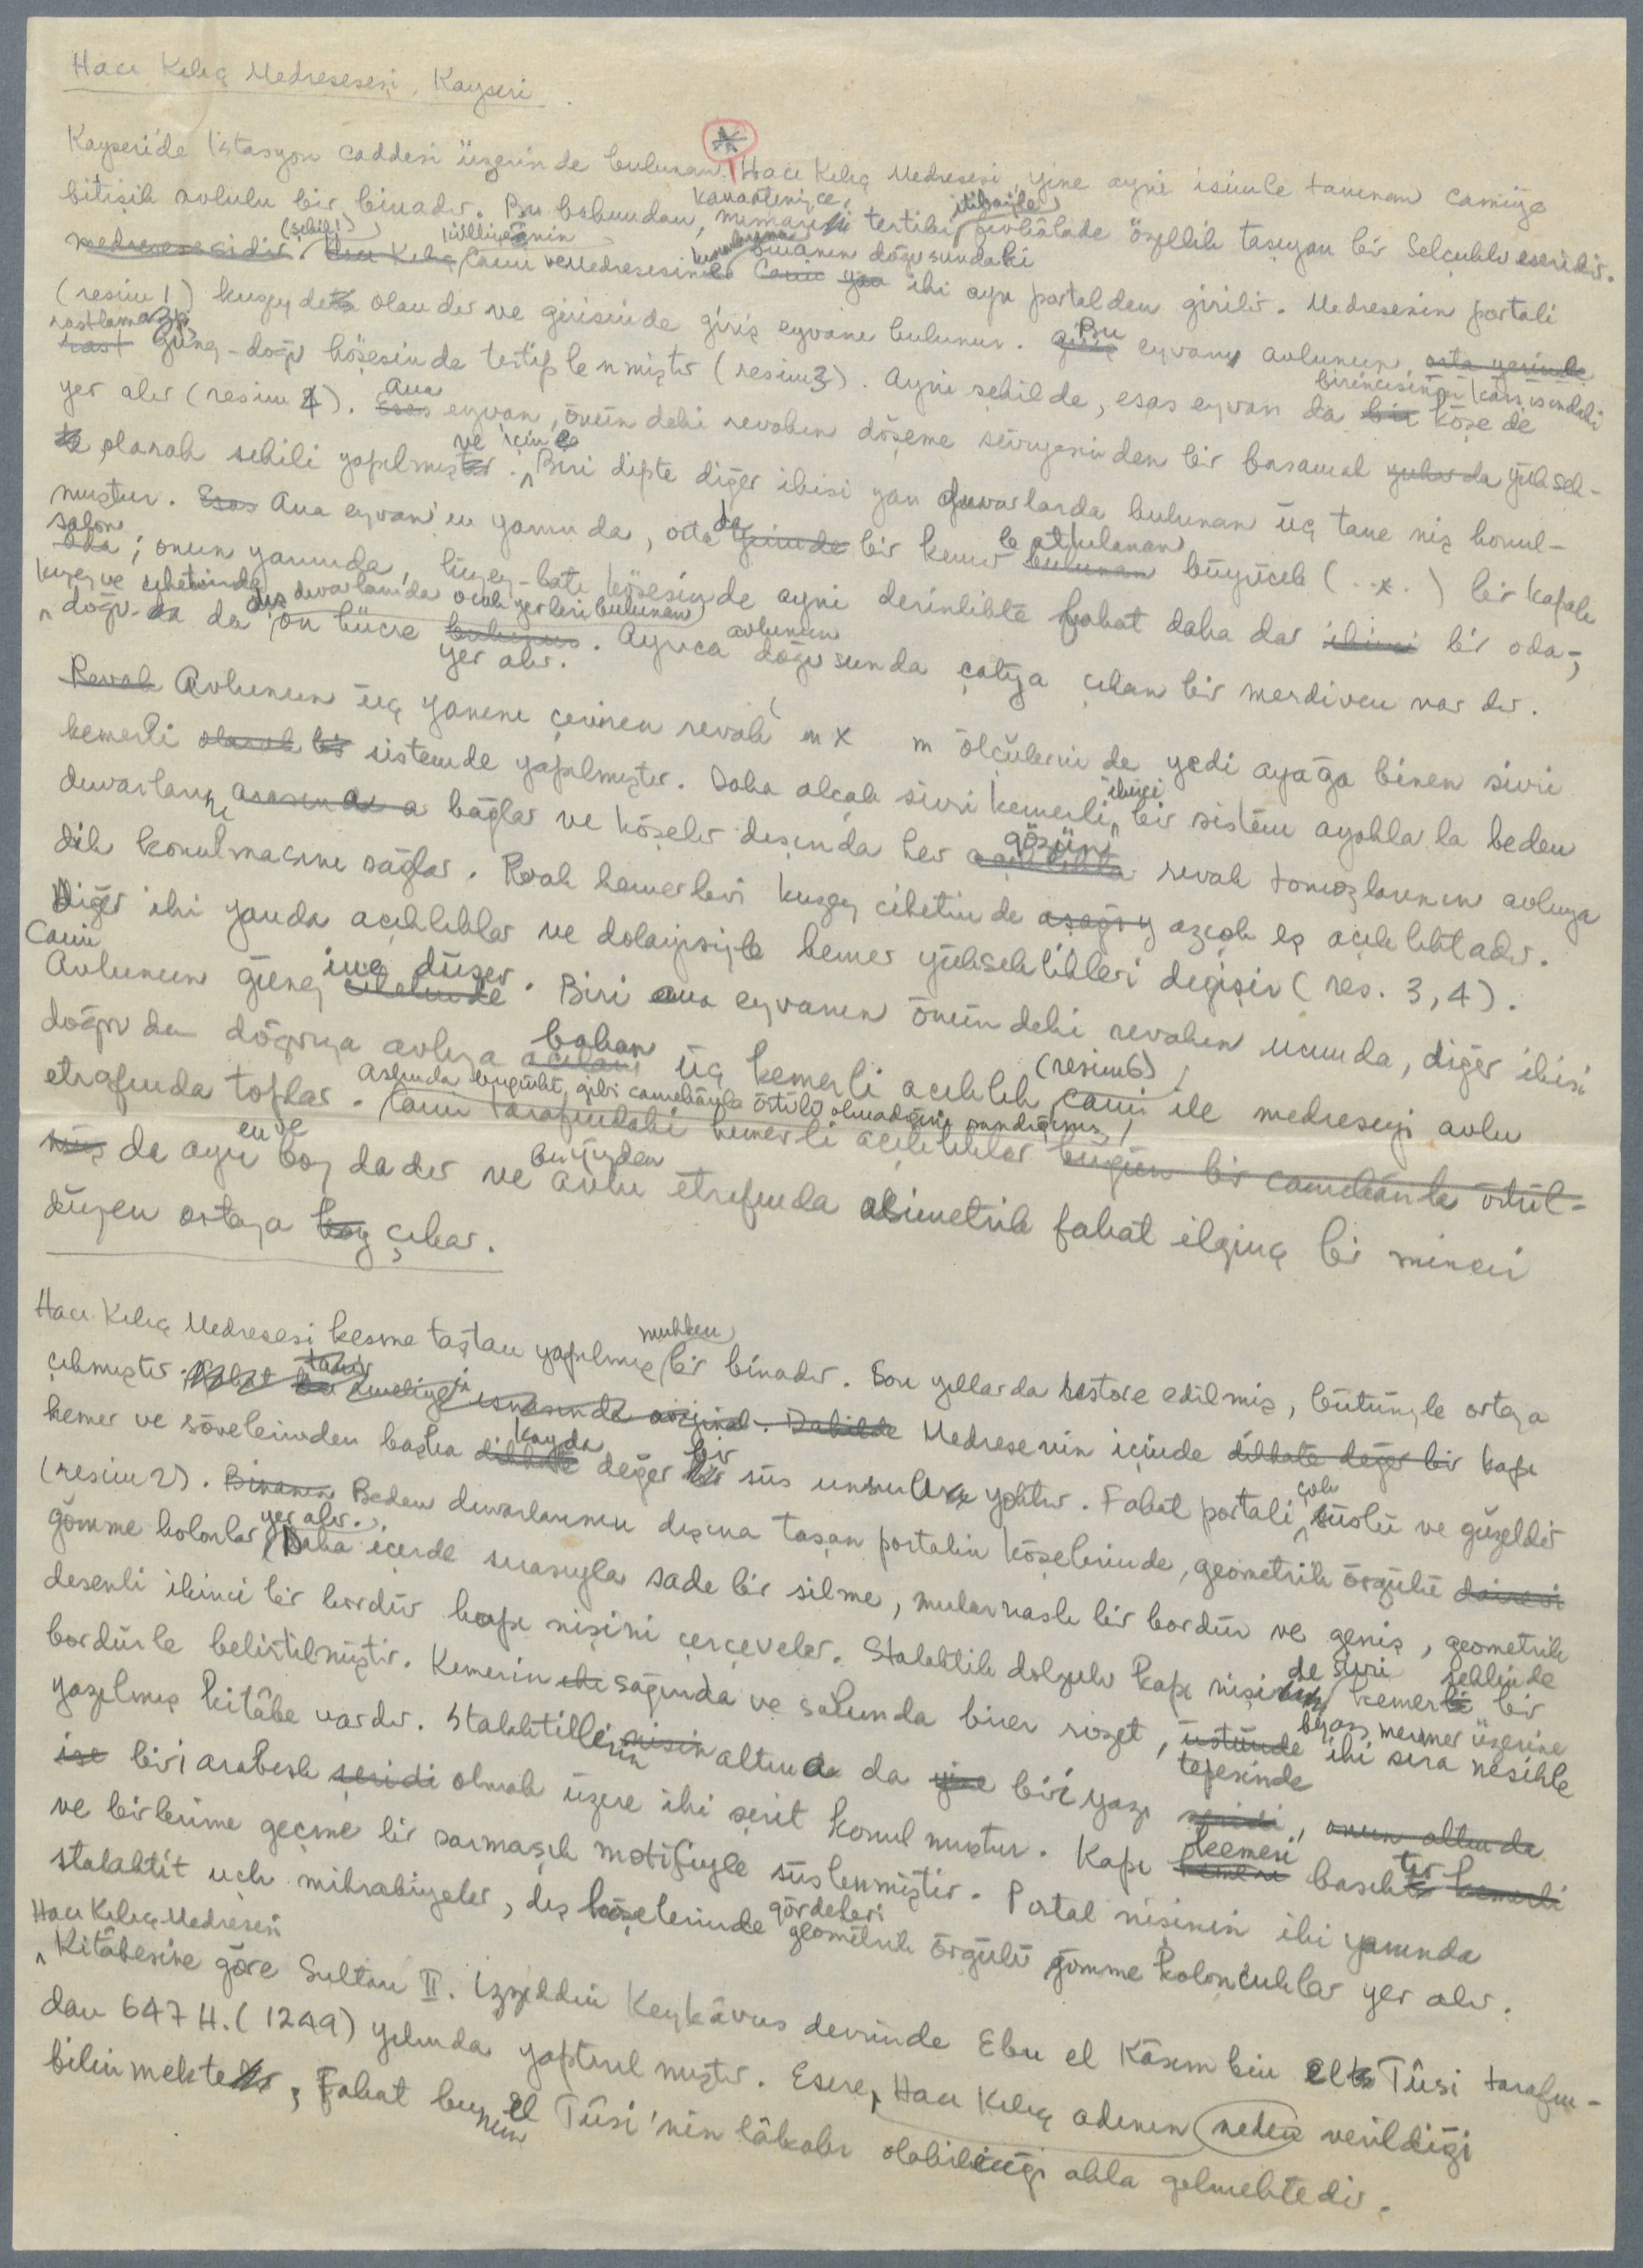 Hacı Kılıç Medresesi, Kayseri.
Kayseri'de İstasyon caddesi üzerinde bulunan * Hacı Kılıç Medresesi, yine ayni isimle tanınan camiye
bitişik avlulu bir binadır. Bu bakımdan, kanaatimizce, mimari tertibi itibariyle fevkâlade özellik taşıyan bir Selçuklu eseridir.
medresesidir. (şekil 1) Hacı Kılıç külliyesinin Cami ve Medresesine binanın doğusundaki iki ayrı portalden girilir. Medresenin portali
(resim 1) kuzeyde olandır ve girişinde giriş eyvanı bulunur. Bu eyvan avlunun orta yerinde
rastlamazıp güney-doğu köşesinde tertiplenmiştir (resim 3). Ayni şekilde, esas eyvan da birincisinin karşısındaki köşede
yer alır (resim 4). Ana eyvan, önündeki revakın döşeme seviyesinden bir basamak yukarda yüksek-
te olarak sekili yapılmış ve içine Biri dipte diğer ikisi yan duvarlarda bulunan üç tane niş konul-
muştur. Esas Ana eyvan'ın yanında, ortada yerinde bir kemerle atkılanan bulunan büyücek (..x.) bir kapalı
salon oda; onun yanında, kuzey-batı köşesinde ayni derinlikte fakat daha dar ikinci bir oda;
kuzey ve doğu cihetinde da dış duvarlarında ocak yerleri bulunan on hücre bulunur yer alır. Ayrıca avlunun doğusunda çatıya çıkan bir merdiven vardır.
Revak Avlunun üç yanını çeviren revak m x m ölçülerinde yedi ayağa binen sivri
kemerli olarak bir sistemde yapılmıştır. Daha alçak sivri kemerli ikinci bir sistem ayaklarla beden
duvarlarını arasına bağlar ve köşeler dışında her gözünü açıklıkta revak tonozlarının avluya
dik konulmasını sağlar. Revak kemerleri kuzey cihetinde aşağı yukarı azçok eş açıklıktadır.
Diğer iki yanda açıklıklar ve dolayısiyle kemer yükseklikleri değişir (res. 3, 4).
Cami Avlunun güneyine düşer. cihetinde Biri ana eyvanın önündeki revakın ucunda, diğer ikisi
doğrudan doğruya avluya bakan açılan üç kemerli açıklık (resim 6) cami ile medreseyi avlu
etrafında toplar. Aslında bugünkü gibi camekânla örtülü olmadığını sandığımız, Cami tarafındaki kemerli açıklıklar bugün bir camekânla örtül-
müş da ayni en ve boydadır ve bu yüzden avlu etrafında asimetrik fakat ilginç bir mimari
düzen ortaya koy çıkar.
Hacı Kılıç Medresesi kesme taştan yapılmış muhkem bir binadır. Son yıllarda restore edilmiş, bütünüyle ortaya
çıkmıştır. Fakat bu tamir ameliyesi esnasında orijinal. Dahilde Medresenin içinde dikkate değer bir kapı
kemer ve sövelerinden başka dikkate kayda değer bir süs unsuru yoktur. Fakat portali çok süslü ve güzeldir
(resim 2). Binanın Beden duvarlarının dışına taşan portalin köşelerinde, geometrik örgülü dairevi
gömme kolonlar yer alır. Daha içerde sırasıyla sade bir silme, mukarnaslı bir bordür ve geniş, geometrik
desenli ikinci bir bordür kapı nişini çerçeveler. Stalaktik dolgulu kapı nişi de sivri kemer şeklinde bir
bordürle belirtilmiştir. Kemerin iki sağında ve solunda birer rozet, üstünde tepesinde beyaz mermer üzerine iki sıra nesihle
yazılmış kitâbe vardır. Stalaktitlerin nişin altında da yine biri yazı şeridi, onun altında
ise biri arabesk şeridi olmak üzere iki şerit konulmuştur. Kapı kemeri basıktır kemerli
ve birbirine geçme bir sarmaşık motifiyle süslenmiştir. Portal nişinin iki yanında
stalaktit uçlu mihrabiyeler, dış köşelerinde gövdeleri geometrik örgülü gömme kolonçuklar yer alır.
Hacı Kılıç Medresesi Kitâbesine göre Sultan II. İzzeddin Keykâvus devrinde Ebu el Kâsım bin el Tûsi tarafın-
dan 647 H. (1249) yılında yaptırılmıştır. Esere, Hacı Kılıç adının neden verildiği
bilinmekte, Fakat bunun el Tûsi'nin lâkabı olabileceği akla gelmektedir.